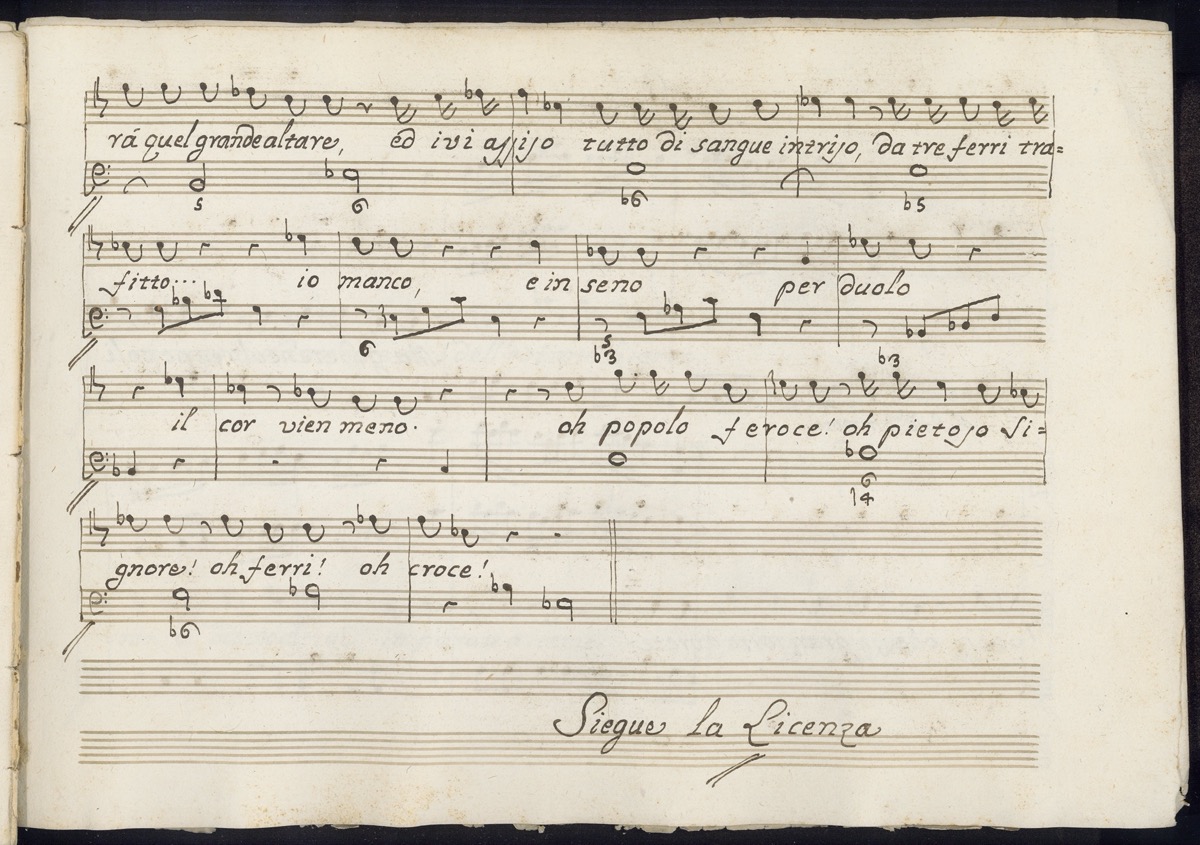 rá quel grande altare, ed ivi assiso tutto di sangue intriso, da tre ferri tra=
5 6 b6 b5
fitto... io manco, e in seno per duolo
6 5 b3 b3
il cor vien meno. oh popolo feroce! oh pietoso Si=
6 14
gnore! oh ferri! oh croce!
b6
Siegue la Licenza